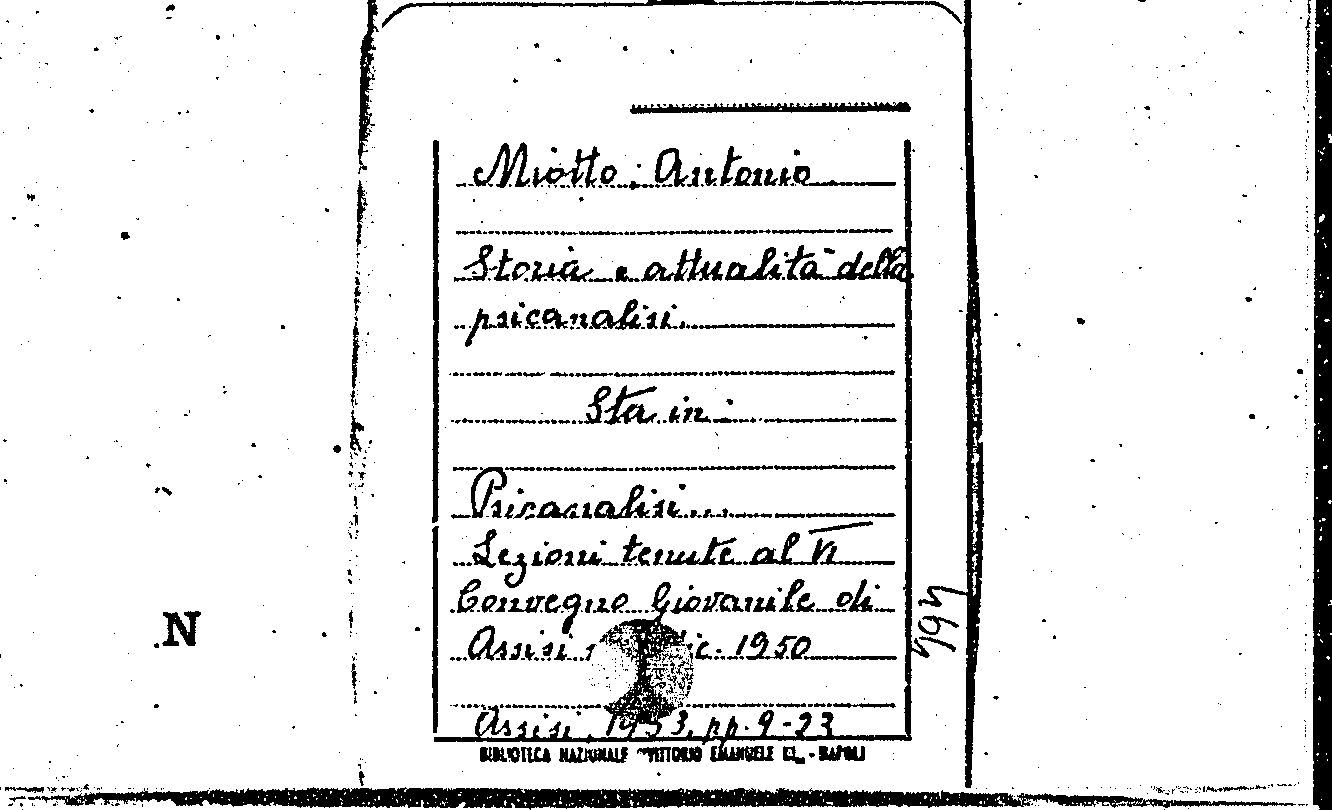 Miotto, Antonio
Storia e attualità della
psicanalisi.
Sta in:
Psicanalisi...
Lezioni tenute al VI
Convegno Giovanile di
Assisi ic. 1950
Assisi, 1953, pp. 9-23
BIBLIOTECA NAZIONALE "VITTORIO EMANUELE III" - NAPOLI
N